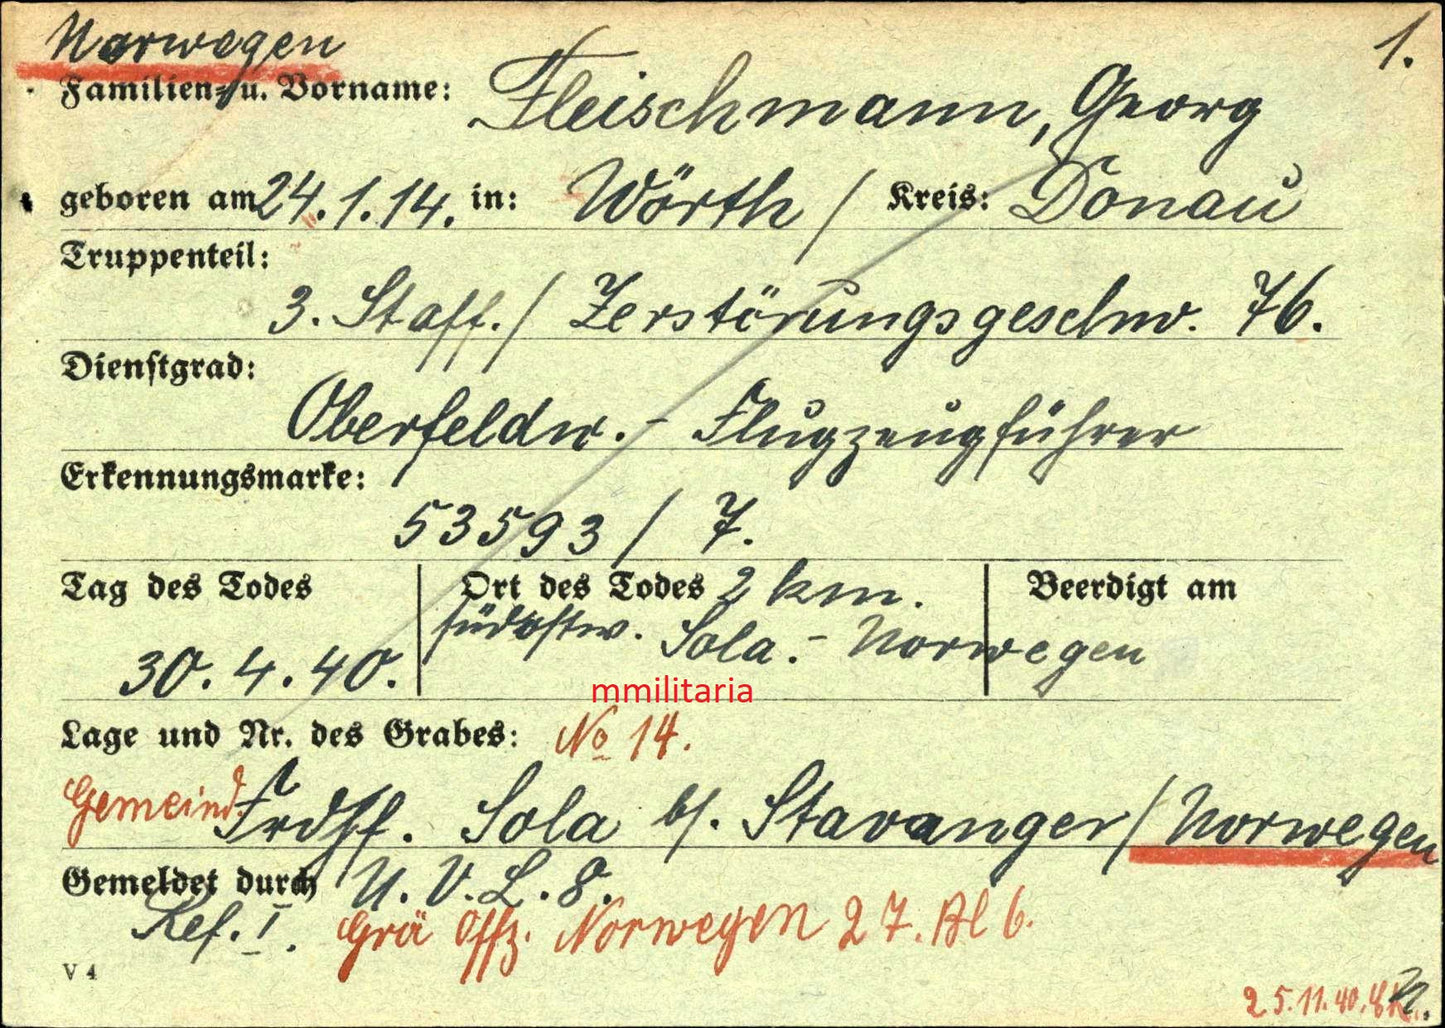 Norwegen 1.
Familien- u. Vorname: Fleischmann, Georg
geboren am 24.1.14. in: Wörth / Kreis: Donau
Truppenteil:
3. Staff. / Zerstörungsgeschw. 76.
Dienstgrad:
Oberfeldw. - Flugzeugführer
Erkennungsmarke:
53593 / 7.
Tag des Todes Ort des Todes 2 km. Beerdigt am
südostw. Sola. - Norwegen
30. 4. 40.
mmilitaria
Lage und Nr. des Grabes: No 14.
Gemeind. Frdhf. Sola b/. Stavanger / Norwegen
Gemeldet durch U. V. L. 8.
Ref. I. Grä Offz. Norwegen 27. Bl 6.
V 4
25.11.40.